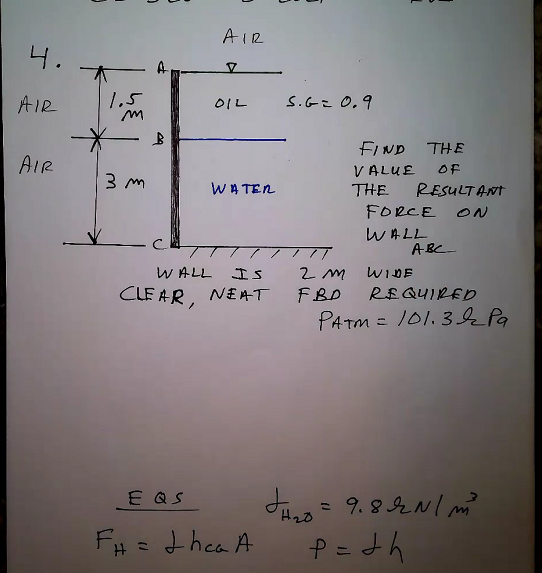 AIR
4.
A
AIR
1.5 m
OIL S.G = 0.9
B
AIR
3 m
WATER
FIND THE
VALUE OF
THE RESULTANT
FORCE ON
WALL
ABC
C
WALL IS 2 m WIDE
CLEAR, NEAT FBD REQUIRED
PATM = 101.3 kPa
EQS
γH2O = 9.8 kN/m³
FH = γhcgA P = γh